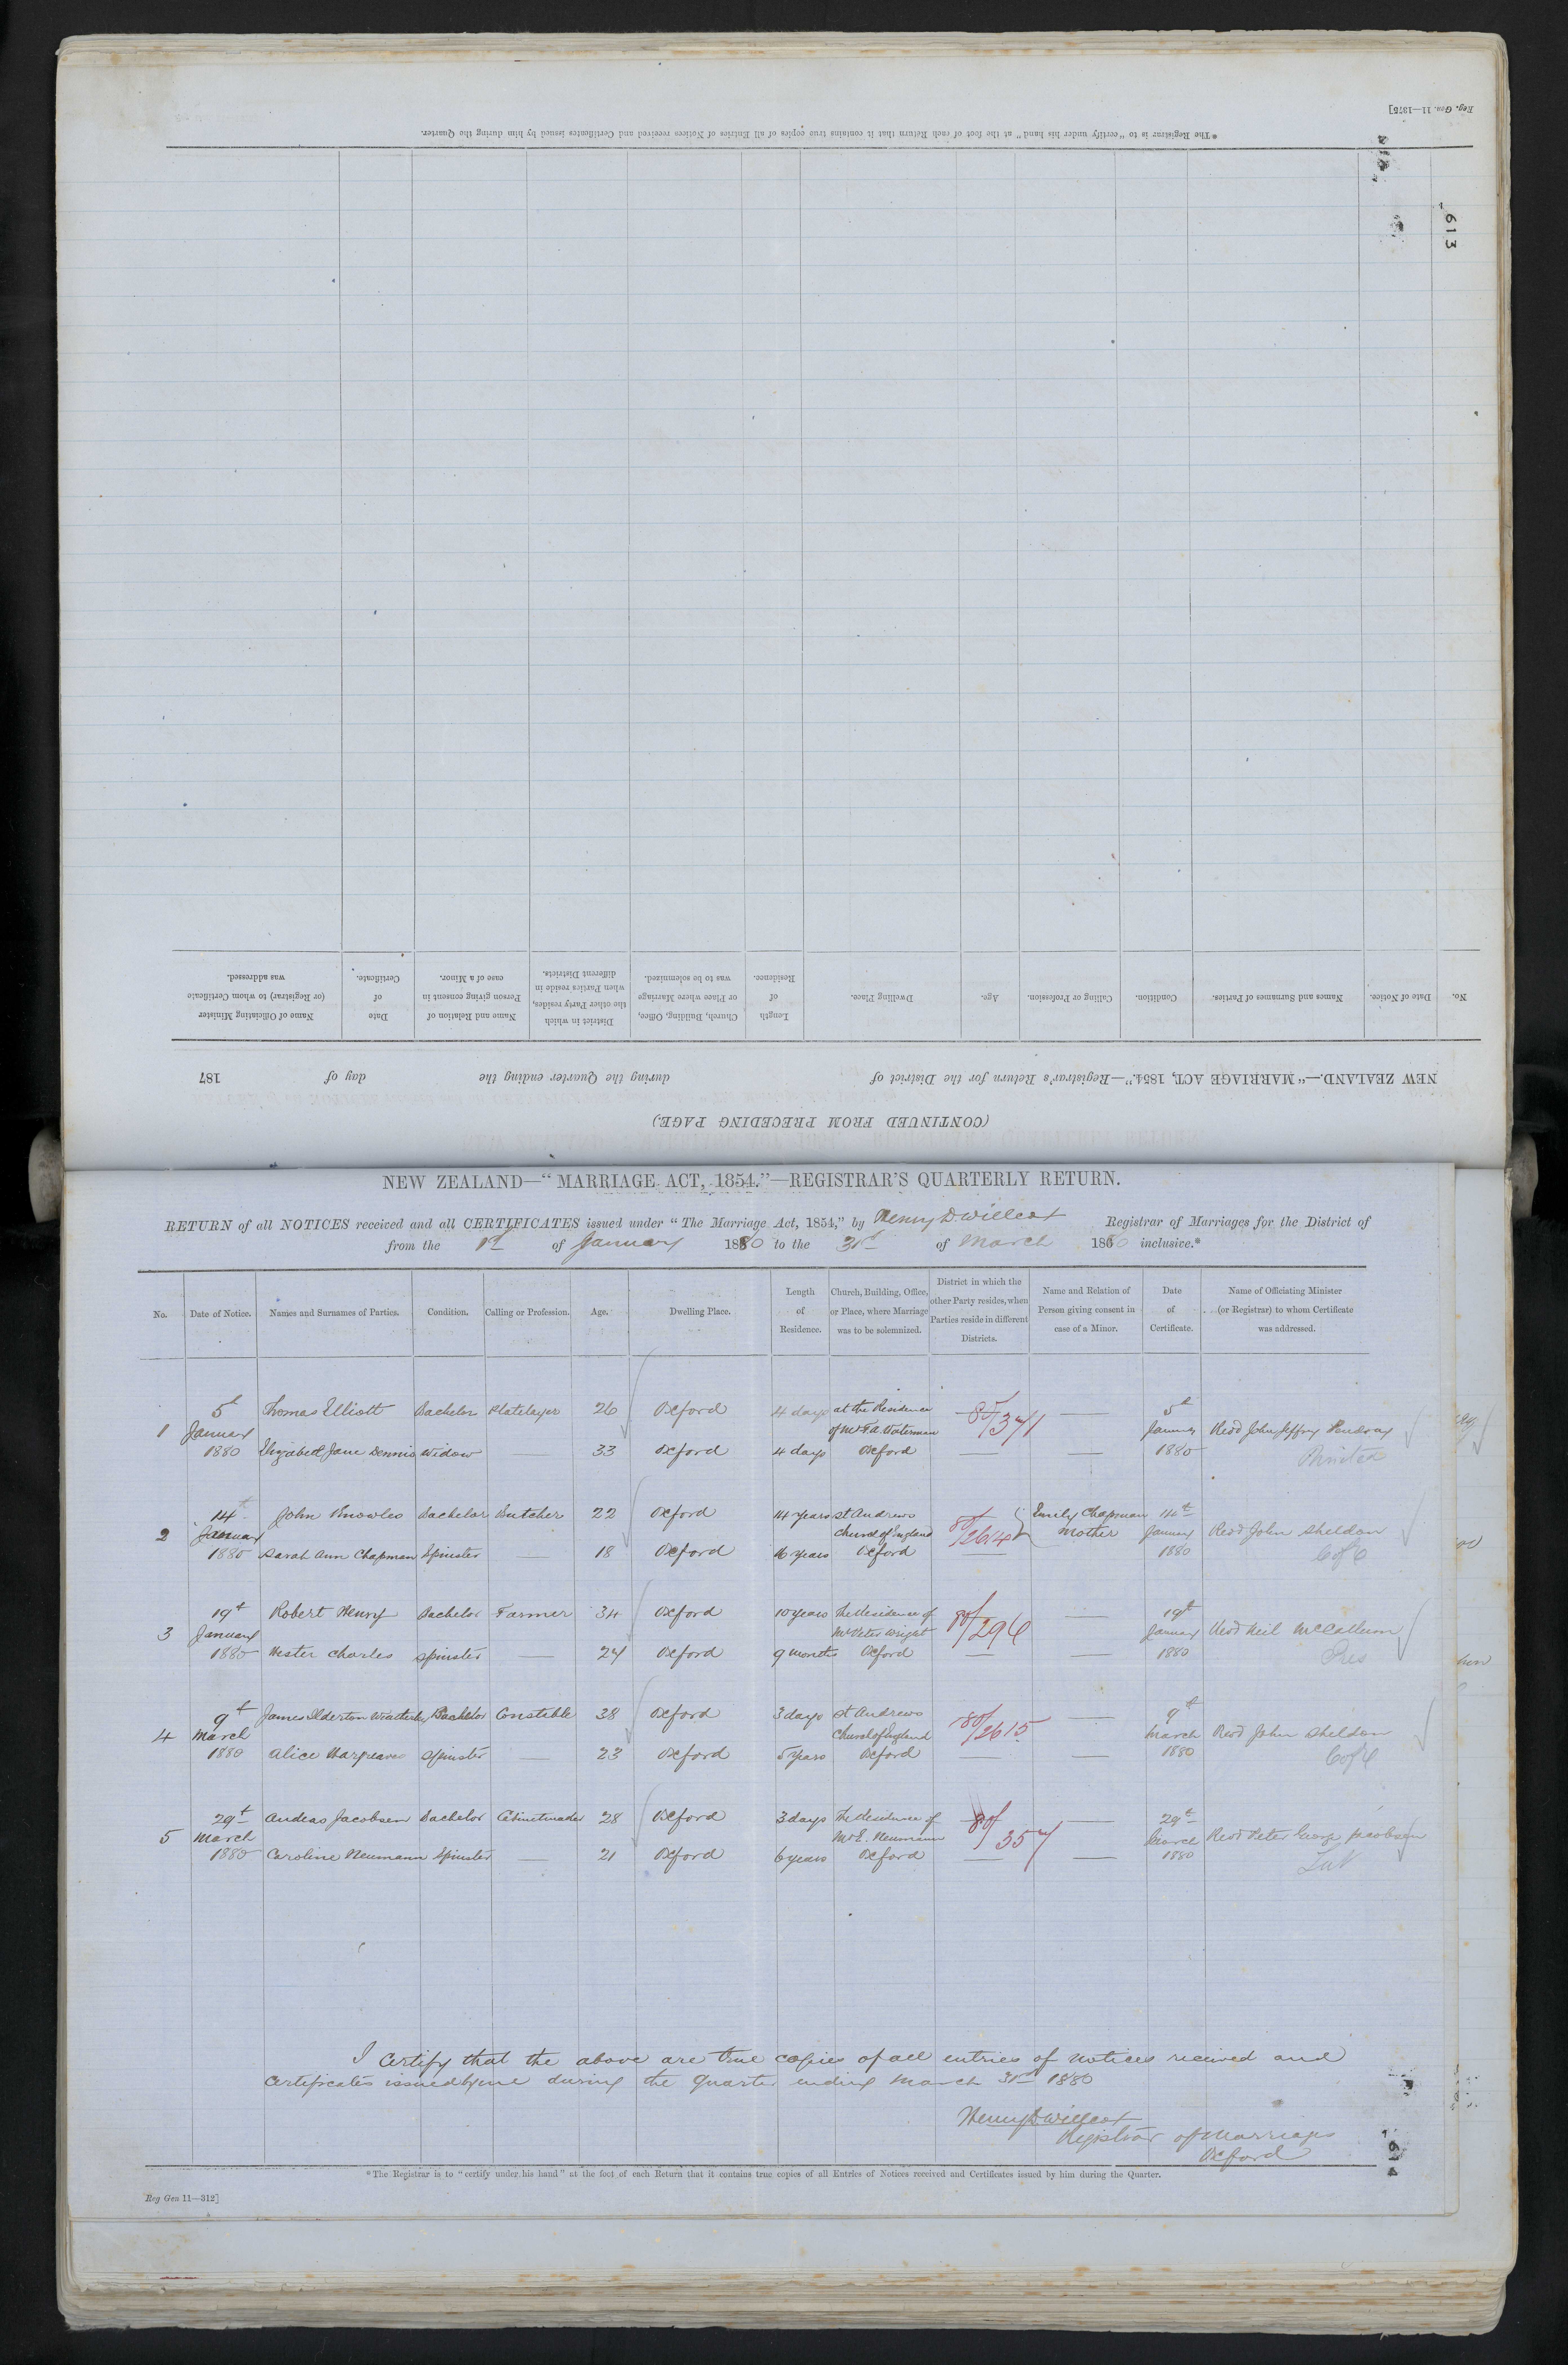 Reg. Gen. 11—1375]
*The Registrar is to "certify under his hand" at the foot of each Return that it contains true copies of all Entries of Notices received and Certificates issued by him during the Quarter.
613
(CONTINUED FROM PRECEDING PAGE.)
NEW ZEALAND.—"MARRIAGE ACT, 1854."—Registrar's Return for the District of during the Quarter ending the day of 187
No. Date of Notice. Names and Surnames of Parties. Condition. Calling or Profession. Age. Dwelling Place. Length of Residence. Church, Building, Office, or Place where Marriage was to be solemnized. District in which the other Party resides, when Parties reside in different Districts. Name and Relation of Person giving consent in case of a Minor. Date of Certificate. Name of Officiating Minister (or Registrar) to whom Certificate was addressed.
NEW ZEALAND—"MARRIAGE ACT, 1854."—REGISTRAR'S QUARTERLY RETURN.
RETURN of all NOTICES received and all CERTIFICATES issued under "The Marriage Act, 1854," by Henry D Willcox Registrar of Marriages for the District of
from the 1st of January 1880 to the 31st of March 1880 inclusive.*
No. Date of Notice. Names and Surnames of Parties. Condition. Calling or Profession. Age. Dwelling Place. Length of Residence. Church, Building, Office, or Place, where Marriage was to be solemnized. District in which the other Party resides, when Parties reside in different Districts. Name and Relation of Person giving consent in case of a Minor. Date of Certificate. Name of Officiating Minister (or Registrar) to whom Certificate was addressed.
5th Thomas Elliott Bachelor Platelayer 26 Oxford 4 days at the Residence 80/371 5th
1 January of Mr F. A. Waterman January Revd John Jeffrey
1880 Elizabeth Jane Dennis Widow 33 Oxford 4 days Oxford 1880
14th John Knowles Bachelor Butcher 22 Oxford 14 years St Andrews 80/2614 Emily Chapman 14th
2 January Church of England Mother January Revd John Sheldon
1880 Sarah Ann Chapman Spinster 18 Oxford 16 years Oxford 1880 C of E
19th Robert Henry Bachelor Farmer 34 Oxford 10 years The Residence of 80/296 19th
3 January Mr Peter Wright January Revd Neil McCallum
1880 Hester Charles Spinster 24 Oxford 9 months Oxford 1880 Pres
9th James Ilderton Bachelor Constable 38 Oxford 3 days St Andrews 80/2615 9th
4 March Church of England March Revd John Sheldon
1880 Alice Hargreaves Spinster 23 Oxford 5 years Oxford 1880 C of E
29th Andeas Jacobsen Bachelor Cabinetmaker 28 Oxford 3 days The Residence of 80/357 29th
5 March Mr E. Neumann March Revd Peter George Jacobsen
1880 Caroline Neumann Spinster 21 Oxford 6 years Oxford 1880 Luth
I certify that the above are true copies of all entries of notices received and
certificates issued by me during the Quarter ending March 31st 1880
Henry D Willcox
Registrar of Marriages
Oxford
614
*The Registrar is to "certify under his hand" at the foot of each Return that it contains true copies of all Entries of Notices received and Certificates issued by him during the Quarter.
Reg Gen 11—312]